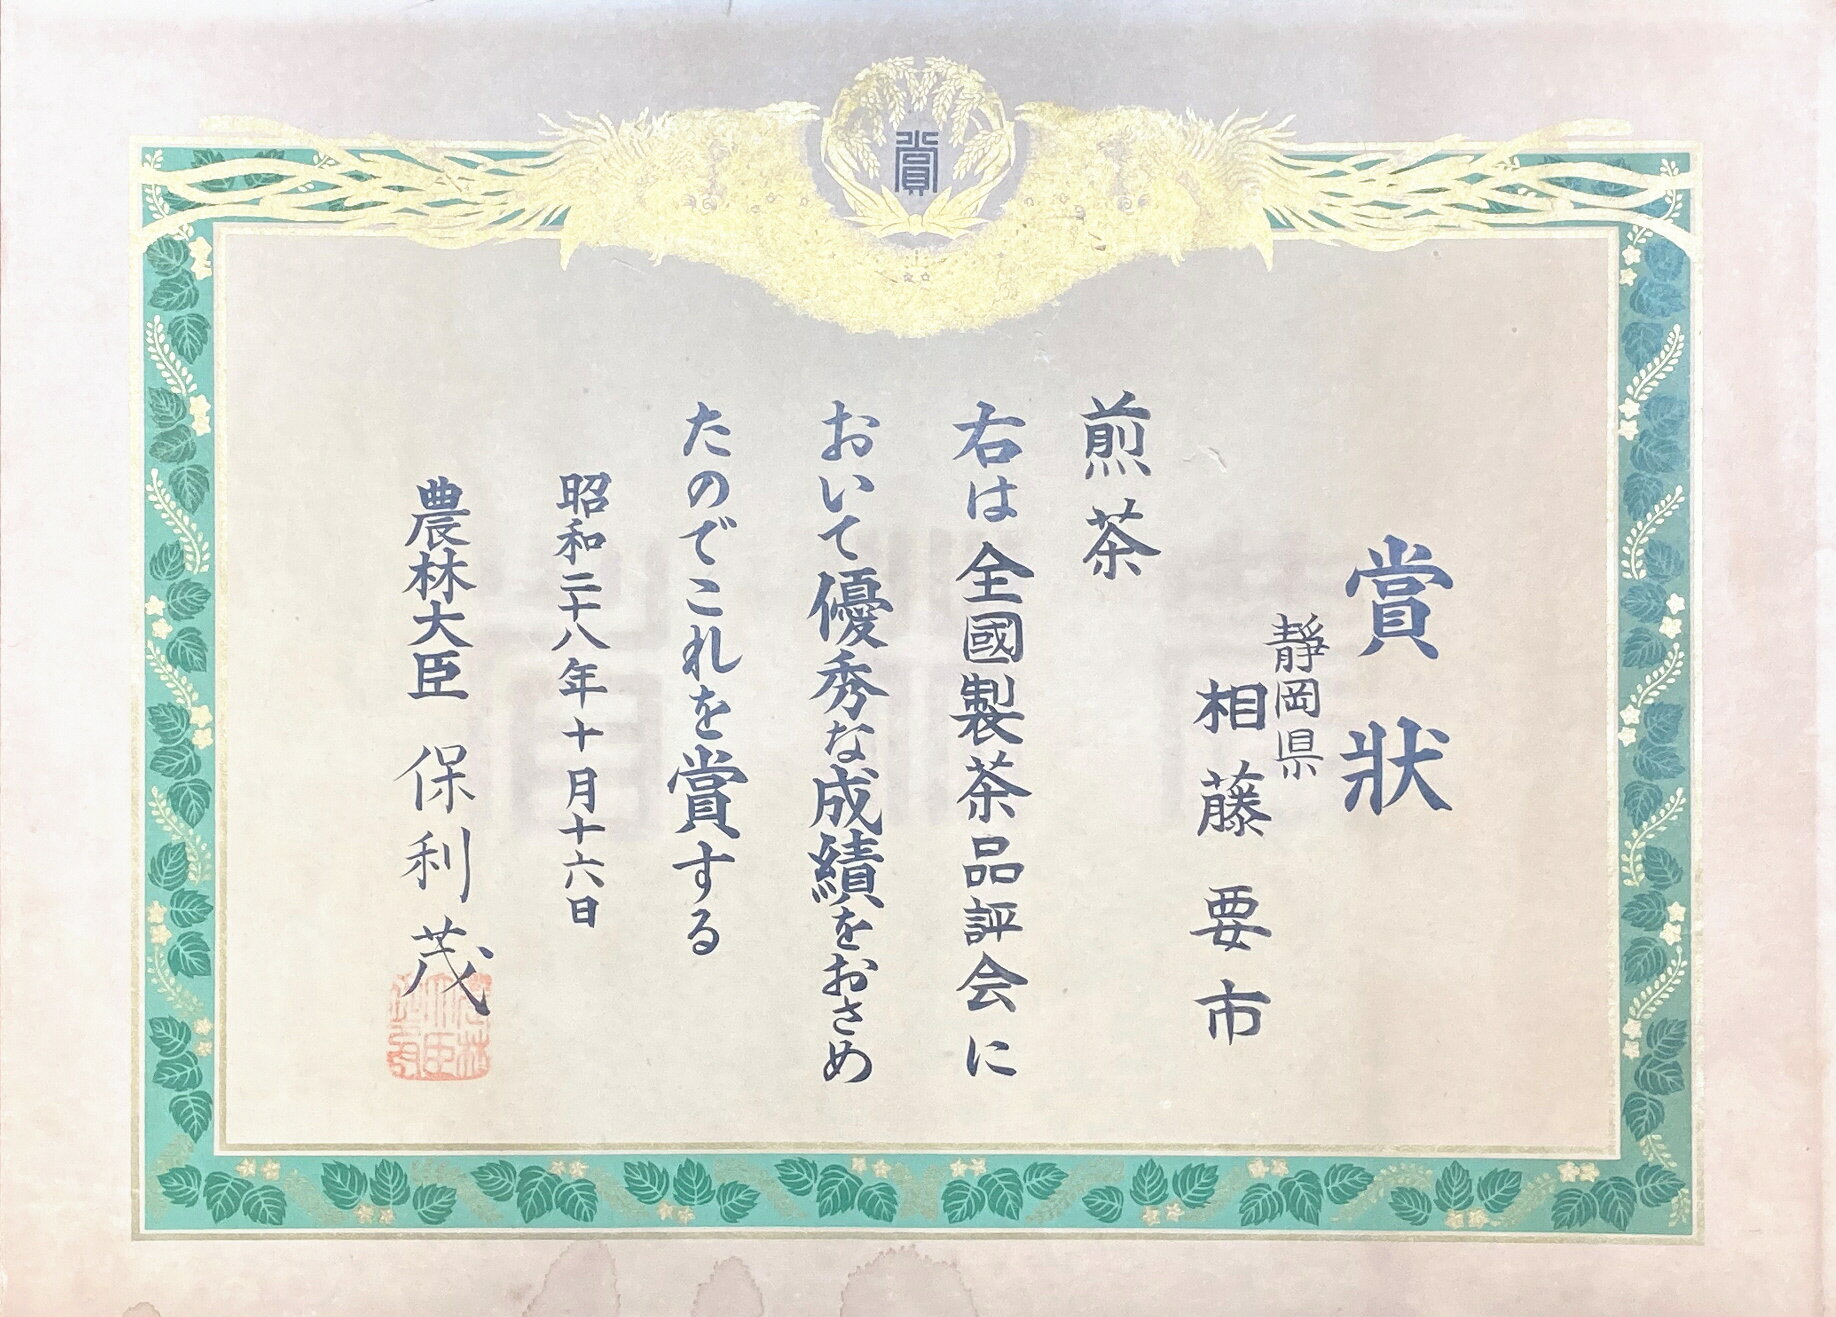 賞
賞狀
靜岡県
相藤要市
煎茶
右は全國製茶品評会に
おいて優秀な成績をおさめ
たのでこれを賞する
昭和二十八年十月十六日
農林大臣 保利茂